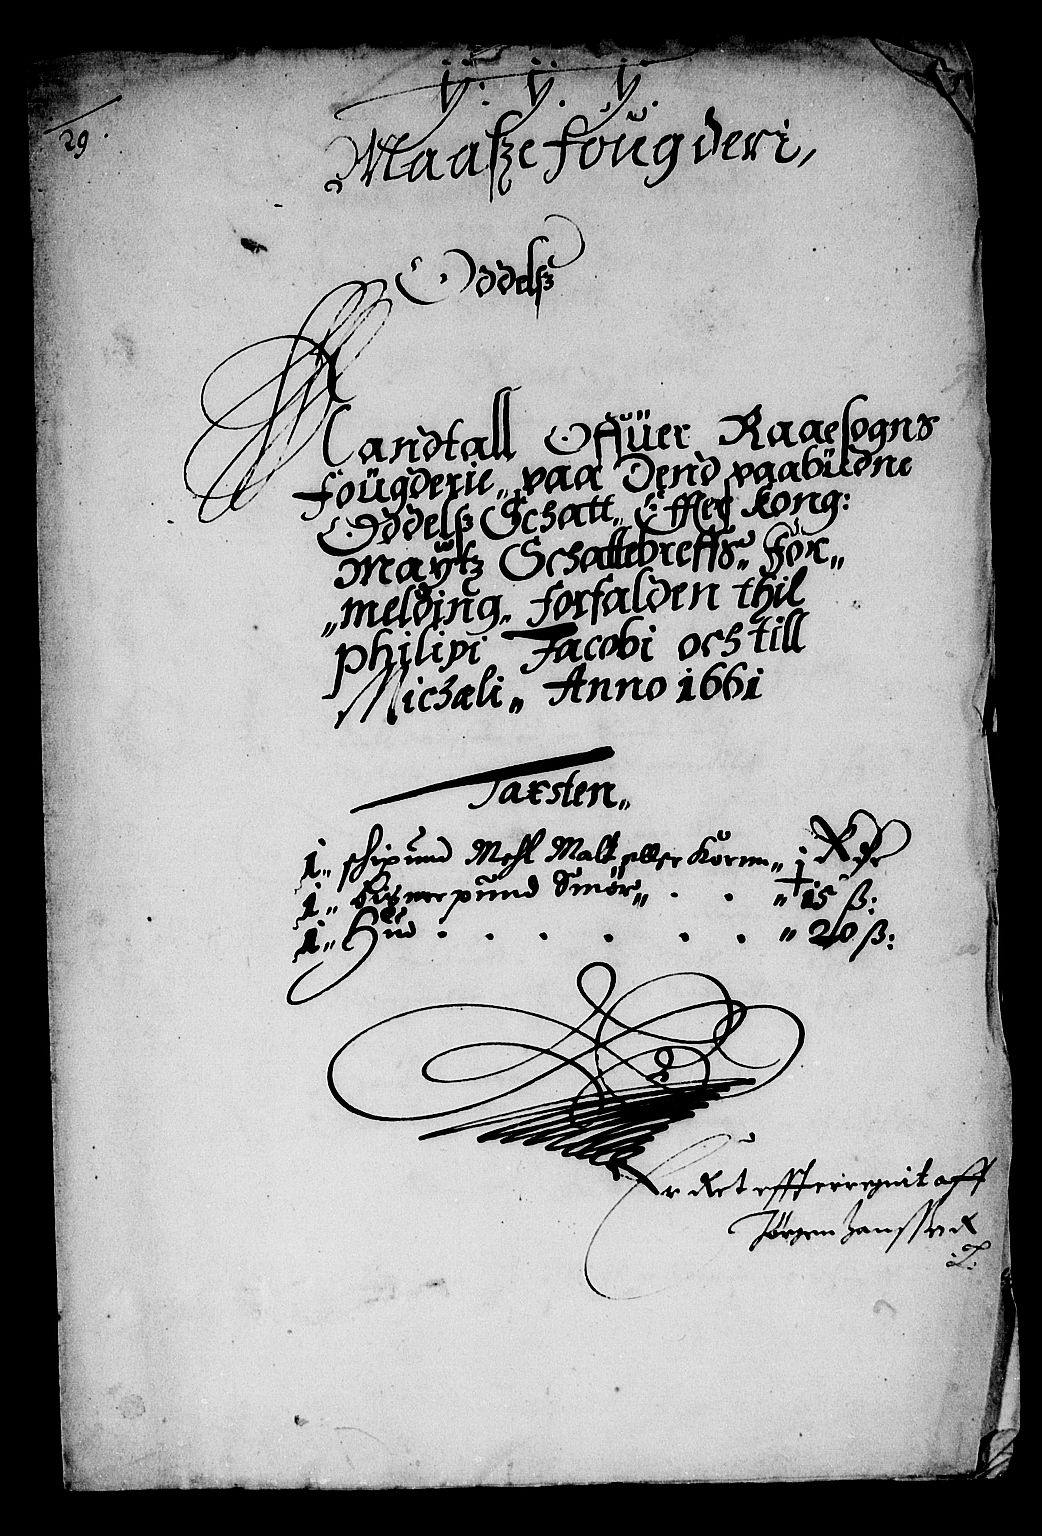 ÿ: ÿ. ÿ.
29.
Maasze fougderi,
Oddelsz
Mandtall Offuer Raaesogns
fougderie,, paa Dend paabudne
Oddelsz Schatt,, Effter Kong:
Maÿtz Schattebreffs,, For,,
,,melding,, forfalden thil
philipi Jacobi och till
Michæli,, Anno 1661
Taxsten,,
1,, schipund Mehl Malt eller Korn,, 1 Rdr
1,, bismerpund Smør,, . . ,, 15 ß:
1,, Hud . . . . . . ,, 20 ß:
Er Ret effterregnit aff
Jørgen Janssen